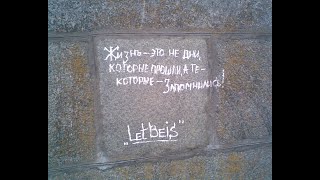 Жизнь – это не дни,
которые прошли, а те –
которые – Запомнились!
"Letbeis"